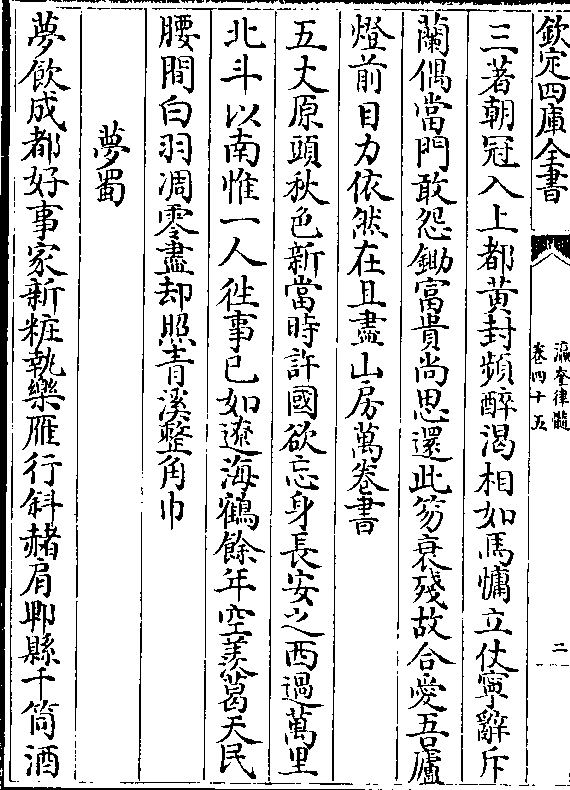 欽定四庫全書
瀛奎律髓
卷四十五
二
三著朝冠入上都黃封頻醉渴相如馬慵立仗寧辭斥
蘭偶當門敢怨鋤富貴尚思還此笏衰殘故合愛吾廬
燈前目力依然在且盡山房萬卷書
五丈原頭秋色新當時許國欲忘身長安之西過萬里
北斗以南惟一人徃事已如遼海鶴餘年空羡葛天民
腰間白羽凋零盡却照青溪整角巾
夢蜀
夢飲成都好事家新粧執樂雁行斜赭肩郫縣千筒酒